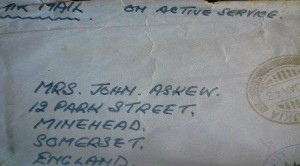 AIR MAIL ON ACTIVE SERVICE.
MRS. JOHN. ASKEW.
12 PARK STREET,
MINEHEAD.
SOMERSET.
ENGLAND.